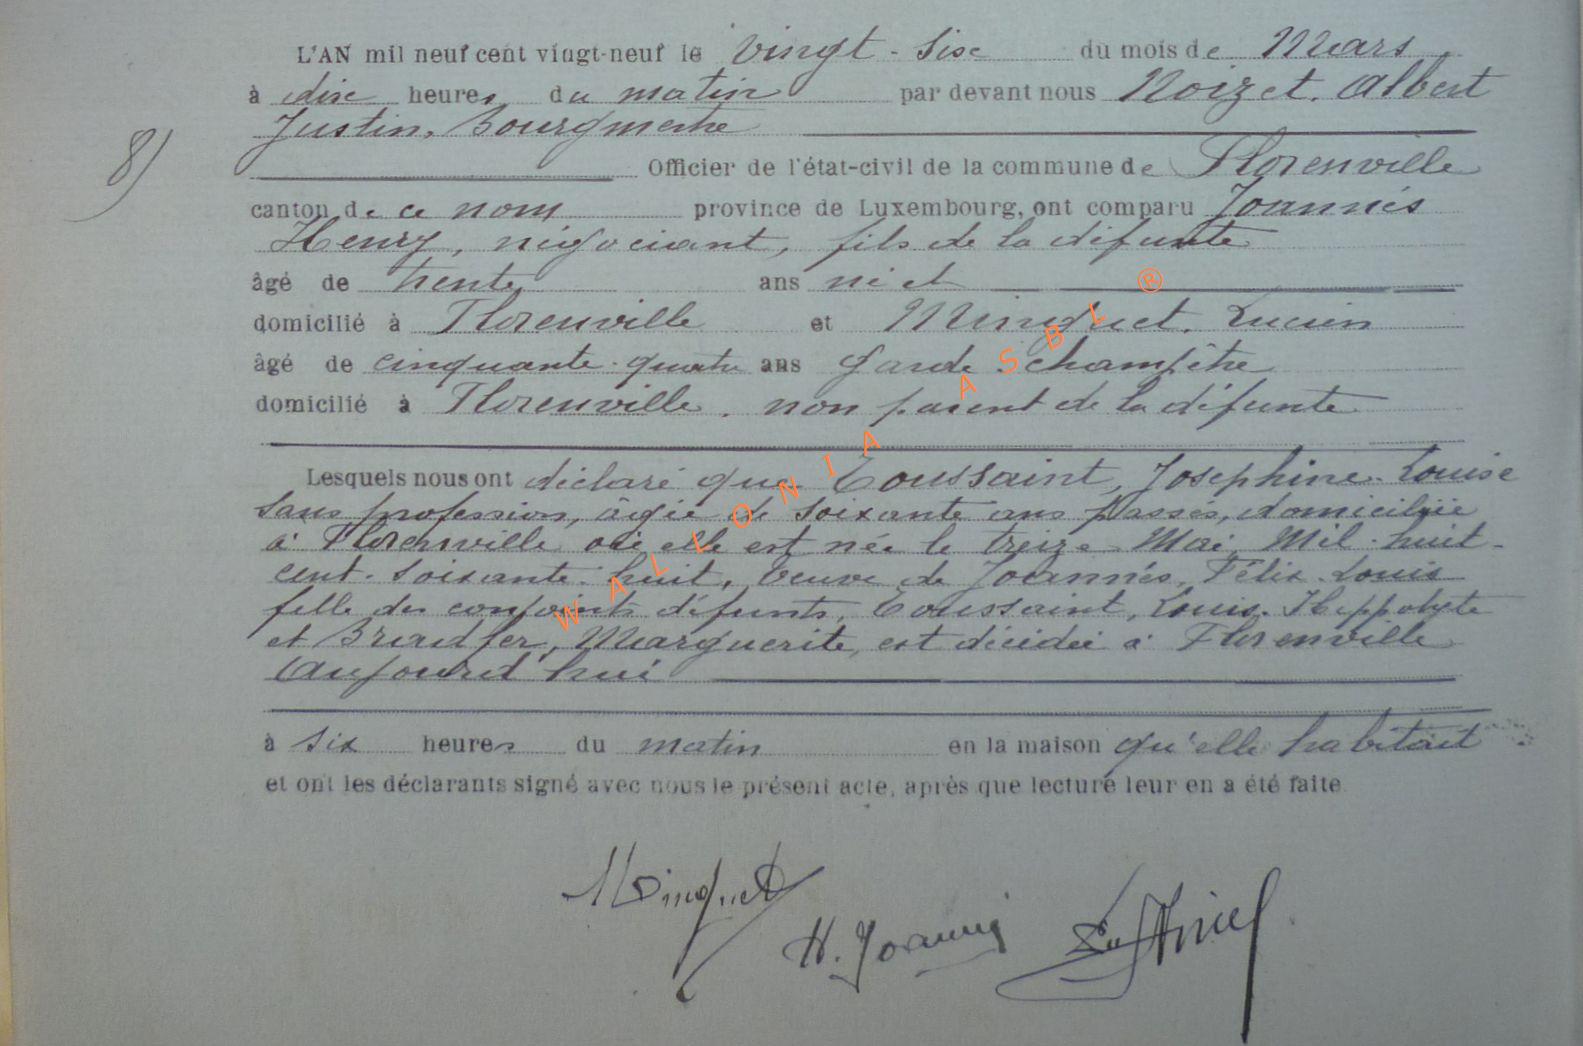 L'AN mil neuf cent vingt-neuf le vingt-six du mois de Mars
à dix heures du matin par devant nous Noizet, Albert
Justin, Bourgmestre
8)
Officier de l'état-civil de la commune de Florenville
canton de ce nom province de Luxembourg, ont comparu Joannès
Henry, négociant, fils de la défunte
âgé de trente ans
domicilié à Florenville et Minguet, Lucien
âgé de cinquante-quatre ans Garde-champêtre
domicilié à Florenville, non parent de la défunte
Lesquels nous ont déclaré que Toussaint, Josephine-Louise
sans profession, âgée de soixante ans passés, domiciliée
à Florenville où elle est née le treize Mai Mil-huit-
cent-soixante-huit, veuve de Joannès, Félix-Louis
fille des conjoints défunts, Toussaint, Louis-Hippolyte
et Marguerite, est décédée à Florenville
aujourd'hui
à six heures du matin en la maison qu'elle habitait
et ont les déclarants signé avec nous le présent acte, après que lecture leur en a été faite
Minguet
H. Joannès
WALLONIA ASBL ®